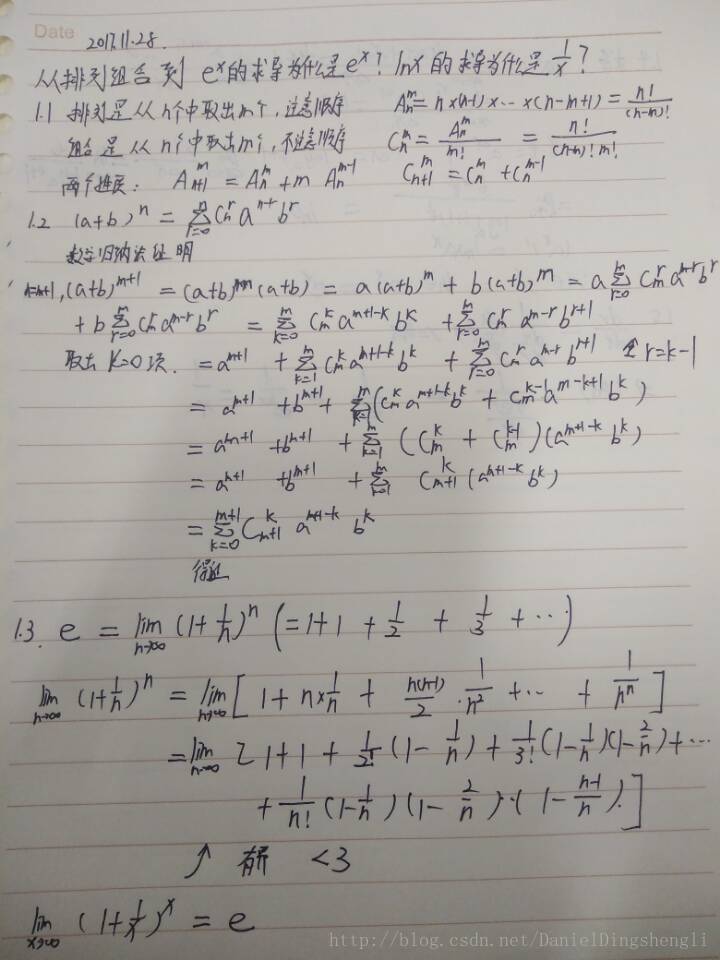 Date 2017.11.28.
从排列组合到 e^x的求导为什么是e^x? lnx 的求导为什么是 1/x ?
1.1 排列是从n个中取出m个, 注意顺序 A_n^m = n×(n-1)×…×(n-m+1) = n!/(n-m)!
组合是从n个中取出m个, 不注意顺序 C_n^m = A_n^m/m! = n!/((n-m)!m!)
两个性质: A_{n+1}^m = A_n^m + m A_n^{m-1} C_{n+1}^m = C_n^m + C_n^{m-1}
1.2 (a+b)^n = Σ_{r=0}^n C_n^r a^{n-r} b^r
数学归纳法证明
n=m+1, (a+b)^{m+1} = (a+b)^m (a+b) = a(a+b)^m + b(a+b)^m = a Σ_{r=0}^m C_m^r a^{m-r} b^r
+ b Σ_{r=0}^m C_m^r a^{m-r} b^r = Σ_{k=0}^m C_m^k a^{m+1-k} b^k + Σ_{r=0}^m C_m^r a^{m-r} b^{r+1}
取出 K=0 项. = a^{m+1} + Σ_{k=1}^m C_m^k a^{m+1-k} b^k + Σ_{r=0}^m C_m^r a^{m-r} b^{r+1} 令 r=k-1
= a^{m+1} + b^{m+1} + Σ_{k=1}^m (C_m^k a^{m+1-k} b^k + C_m^{k-1} a^{m-k+1} b^k)
= a^{m+1} + b^{m+1} + Σ_{k=1}^m (C_m^k + C_m^{k-1})(a^{m+1-k} b^k)
= a^{m+1} + b^{m+1} + Σ_{k=1}^m C_{m+1}^k (a^{m+1-k} b^k)
= Σ_{k=0}^{m+1} C_{m+1}^k a^{m+1-k} b^k
得证
1.3. e = lim_{n→∞} (1+1/n)^n (=1+1+1/2 + 1/3 + …)
lim_{n→∞} (1+1/n)^n = lim_{n→∞} [1 + n×1/n + n(n-1)/2 · 1/n^2 + … + 1/n^n]
= lim_{n→∞} [1+1+1/2!(1-1/n) + 1/3!(1-1/n)(1-2/n) + …
+ 1/n!(1-1/n)(1-2/n)…(1-(n-1)/n).]
↗ 有界 <3
lim_{x→∞} (1+1/x)^x = e
http://blog.csdn.net/DanielDingshengli